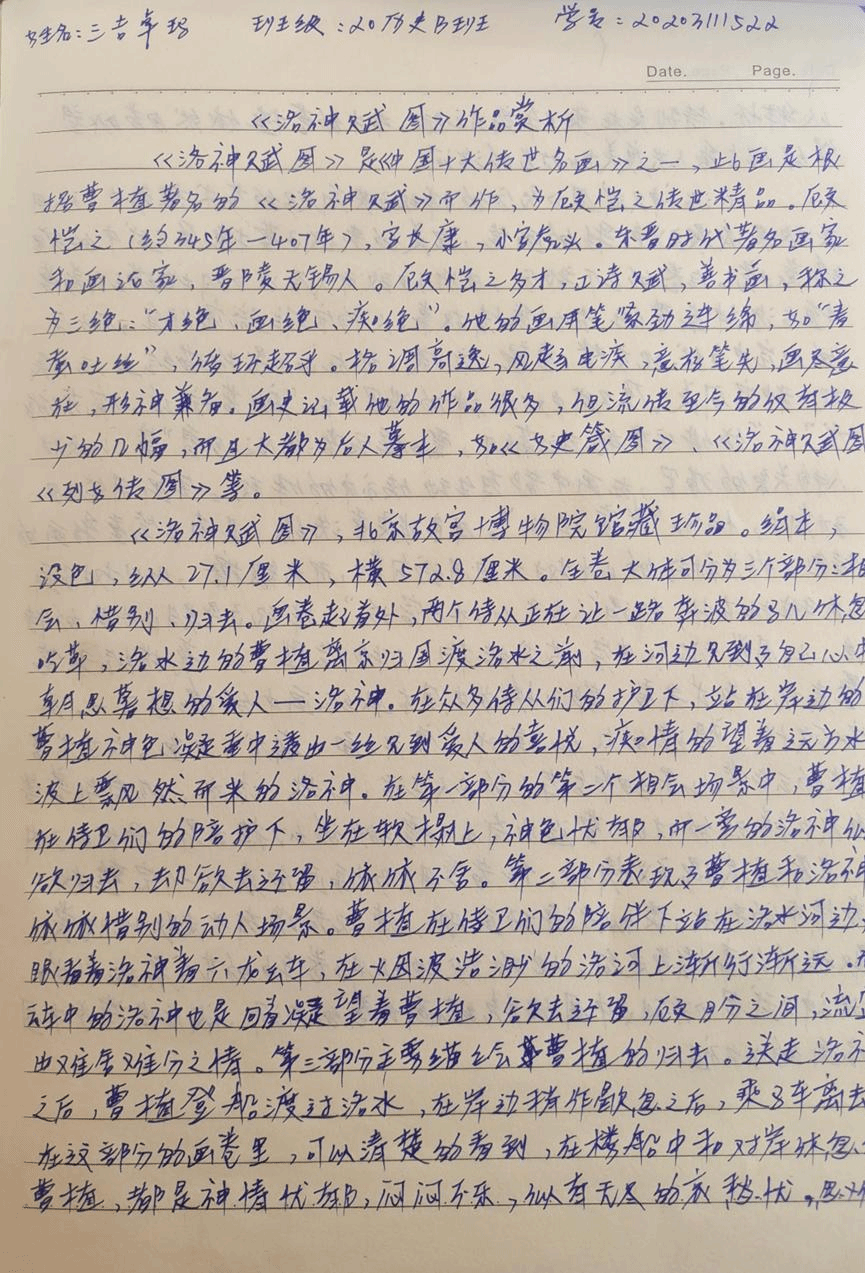 姓名：三吉卓玛 班级：20历史B班 学号：20203111522
Date. Page.
《洛神赋图》作品赏析
《洛神赋图》是《中国十大传世名画》之一，此画是根
据曹植著名的《洛神赋》而作，为顾恺之传世精品。顾
恺之（约345年—407年），字长康，小字虎头。东晋时代著名画家
和画论家，晋陵无锡人。顾恺之多才，工诗赋，善书画，称之
为三绝：“才绝、画绝、痴绝”。他的画用笔紧劲连绵，如“春
蚕吐丝”，循环超乎。格调高逸，风趋电疾，意存笔先，画尽意
在，形神兼备。画史记载他的作品很多，但流传至今的仅有极
少的几幅，而且大都为后人摹本，如《女史箴图》、《洛神赋图
《列女传图》等。
《洛神赋图》，北京故宫博物院馆藏珍品。绢本，
设色，纵27.1厘米，横572.8厘米。全卷大体可分为三个部分：相
会、惜别、归去。画卷起首处，两个侍从正在让一路奔波的马儿休息
吃草，洛水边的曹植离京归国渡洛水之前，在河边见到了自己心中
朝思暮想的爱人—洛神。在众多侍从们的护卫下，站在岸边的
曹植神色凝重中透出一丝见到爱人的喜悦，痴情的望着远方水
波上飘然而来的洛神。在第一部分的第二个相会场景中，曹植
在侍卫们的陪护下，坐在软榻上，神色忧郁，而一旁的洛神似
欲归去，却欲去还留，依依不舍。第二部分表现了曹植和洛神
依依惜别的动人场景。曹植在侍卫们的陪伴下站在洛水河边，
眼看着洛神着六龙云车，在烟波浩渺的洛河上渐行渐远。而
云车中的洛神也是回首凝望着曹植，欲去还留，顾盼之间，流
出难舍难分之情。第三部分主要描绘曹植的归去。送走洛神
之后，曹植登船渡过洛水，在岸边稍作歇息之后，乘马车离去
在这部分的画卷里，可以清楚的看到，在楼船中和对岸休息
曹植，都是神情忧郁，闷闷不乐，似有无尽的哀愁忧。思